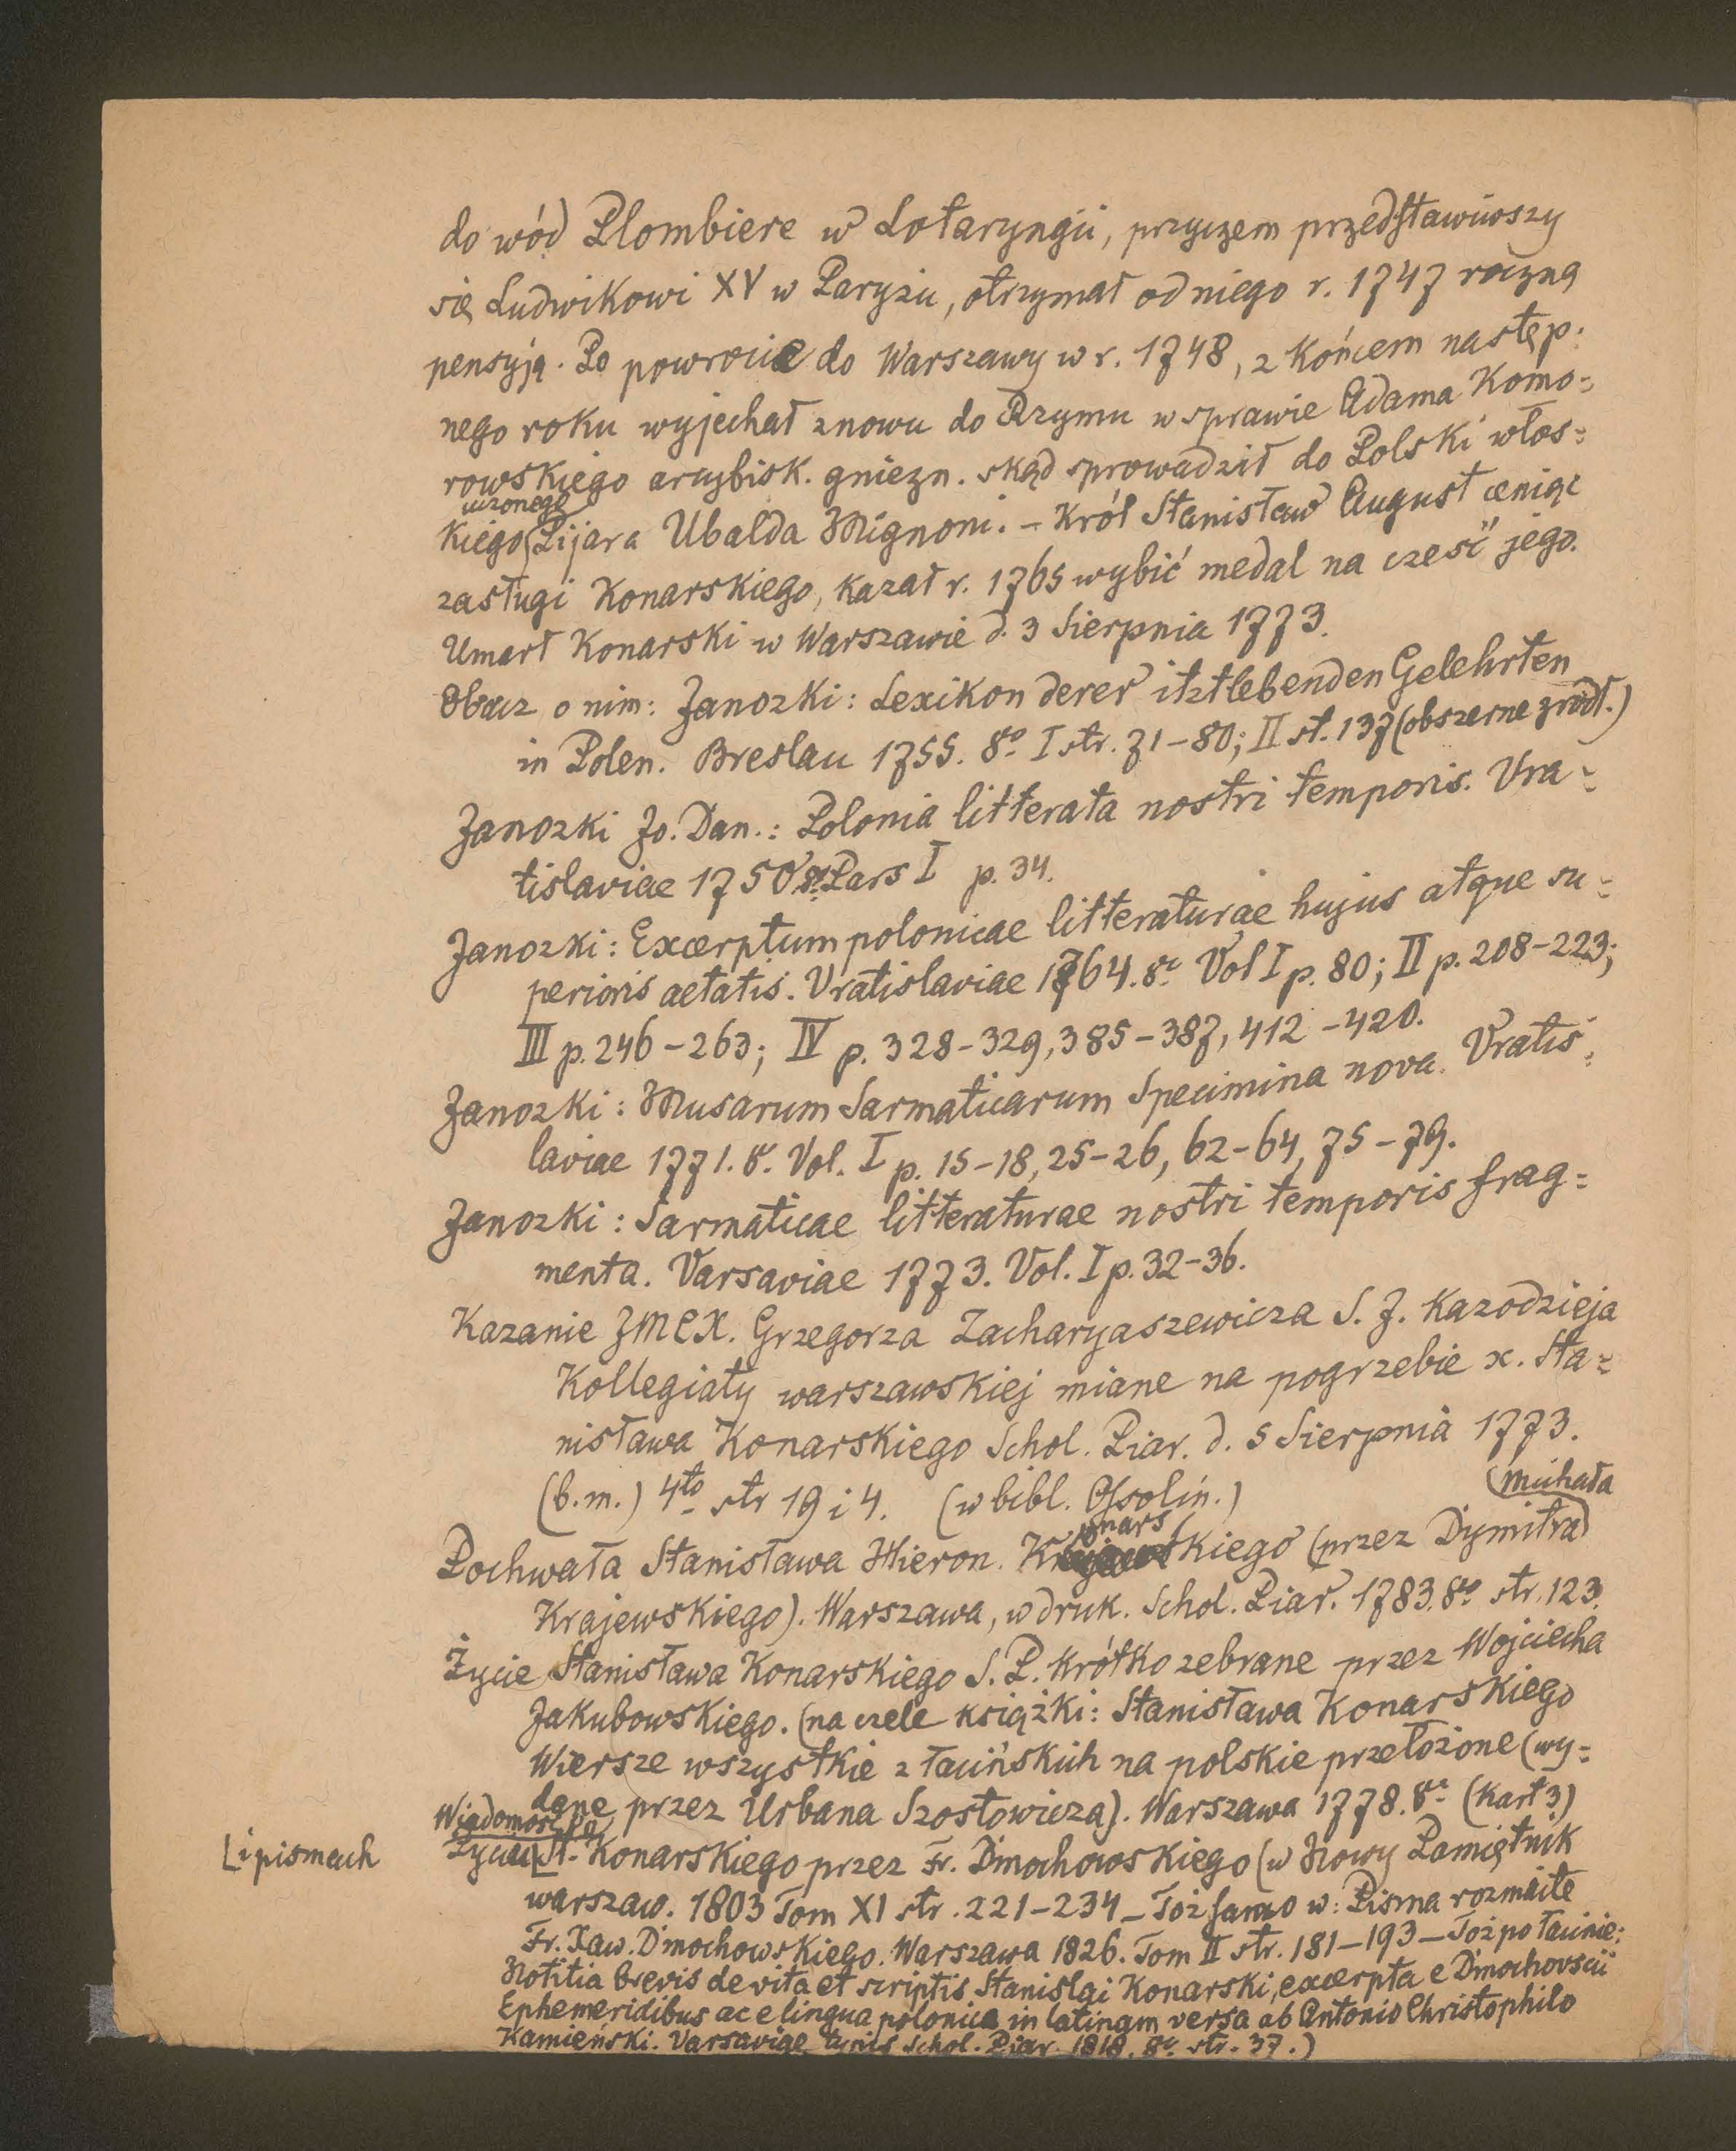 do wód Plombiere w Lotaryngii, przyczem przedstawiwszy
się Ludwikowi XV w Paryżu, otrzymał od niego r. 1747 roczną
pensyją. Po powrocie do Warszawy w r. 1748, z końcem następ:
nego roku wyjechał znowu do Rzymu w sprawie Adama Komo:
rowskiego arcybisk. gniezn. skąd sprowadził do Polski włos:
uczonego
kiego Pijara Ubalda Mignoni. – Król Stanisław August ceniąc
zasługi Konarskiego, kazał r. 1765 wybić medal na cześć jego.
Umarł Konarski w Warszawie d. 3 Sierpnia 1773.
Obacz o nim: Janozki: Lexikon derer itztlebenden Gelehrten
in Polen. Breslau 1755. 8o I str. 71–80; II st. 137 (obszerne źródł.)
Janozki Jo. Dan.: Polonia litterata nostri temporis. Vra:
tislaviae 1750 8o Pars I p. 34.
Janozki: Excerptum polonicae litteraturae hujus atque su:
perioris aetatis. Vratislaviae 1764. 8o Vol I p. 80; II p. 208–223;
III p. 246–263; IV p. 328–329, 385–387, 412–420.
Janozki: Musarum Sarmaticarum Specimina nova. Vratis:
laviae 1771. 8o. Vol. I p. 15–18, 25–26, 62–64, 75–79.
Janozki: Sarmaticae litteraturae nostri temporis frag:
menta. Varsaviae 1773. Vol. I p. 32–36.
Kazanie JMCX. Grzegorza Zacharyaszewicza S. J. Kazodzieja
Kollegiaty warszawskiej miane na pogrzebie x. Sta:
nisława Konarskiego Schol. Piar. d. 5 Sierpnia 1773.
(b. m.) 4to str 19 i 4. (w bibl. Ossolin.)
Michała
onars
Pochwała Stanisława Hieron. Kkiego (przez Dymitra
Krajewskiego). Warszawa, w druk. Schol. Piar. 1783. 8o str. 123.
Życie Stanisława Konarskiego S. P. krótko zebrane przez Wojciecha
Jakubowskiego. (na czele książki: Stanisława Konarskiego
Wiersze wszystkie z łacińskich na polskie przełożone (wy:
dane przez Urbana Szostowicza). Warszawa 1778. 8o (kart 3)
Wiadomość o
Życiu St. Konarskiego przez Fr. Dmochowskiego (w Nowy Pamiętnik
i pismach
warszaw. 1803 Tom XI str. 221–234 – Toż samo w: Pisma rozmaite
Fr. Xaw. Dmochowskiego. Warszawa 1826. Tom II str. 181–193 – Toż po łacinie:
Notitia brevis de vita et scriptis Stanislai Konarski, excerpta e Dmochovscii
Ephemeridibus ac e lingua polonica in latinam versa ab Antonio Christophilo
Kamieński. Varsaviae typis Schol. Piar. 1818. 8o. str. 37.)